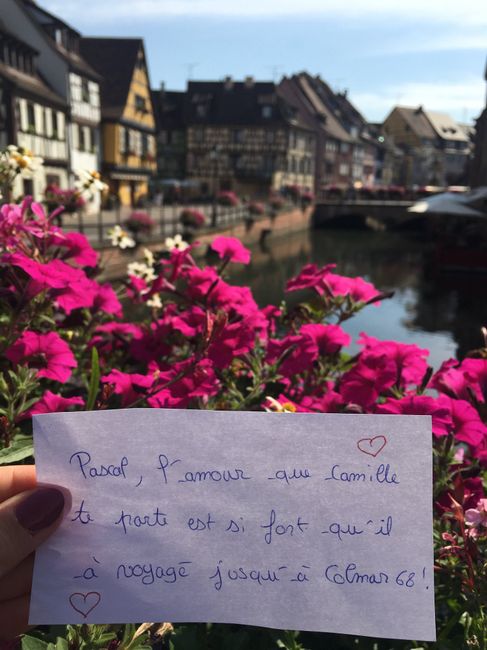 Pascal, l'amour que Camille
te porte est si fort qu'il
à voyagé jusqu'à Colmar 68!